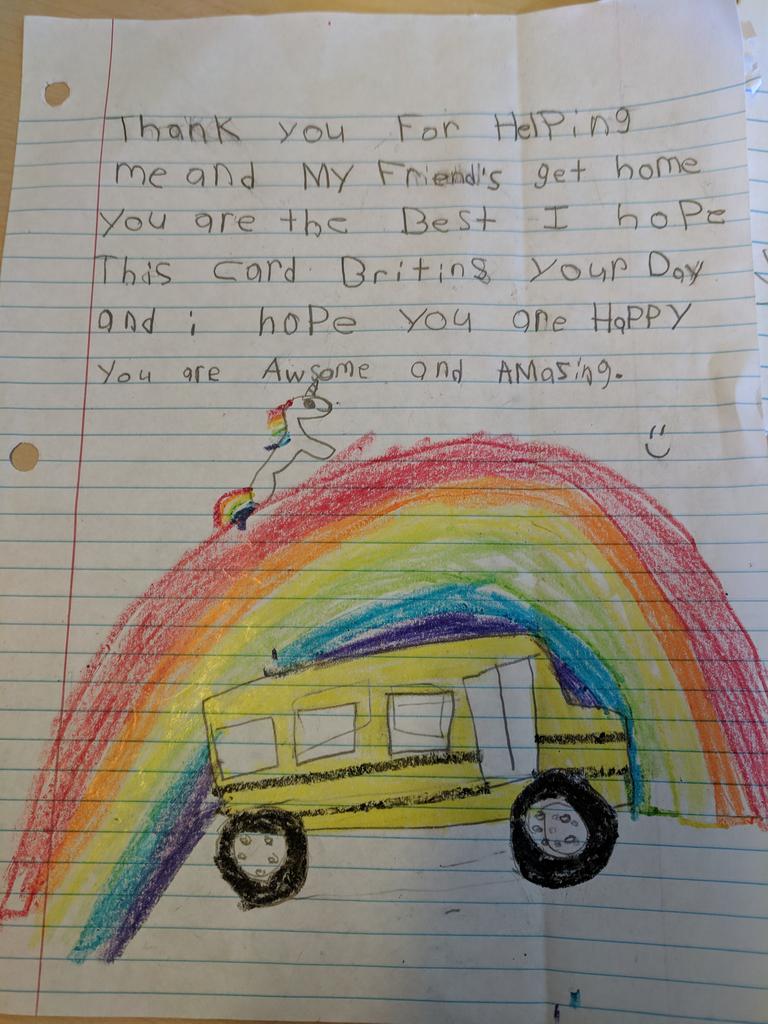 Thank you For HelPing
me and My Friend's get home
you are the Best I hope
This card Briting your Day
and i hope you are HaPPY
You are Awsome and AMasing.